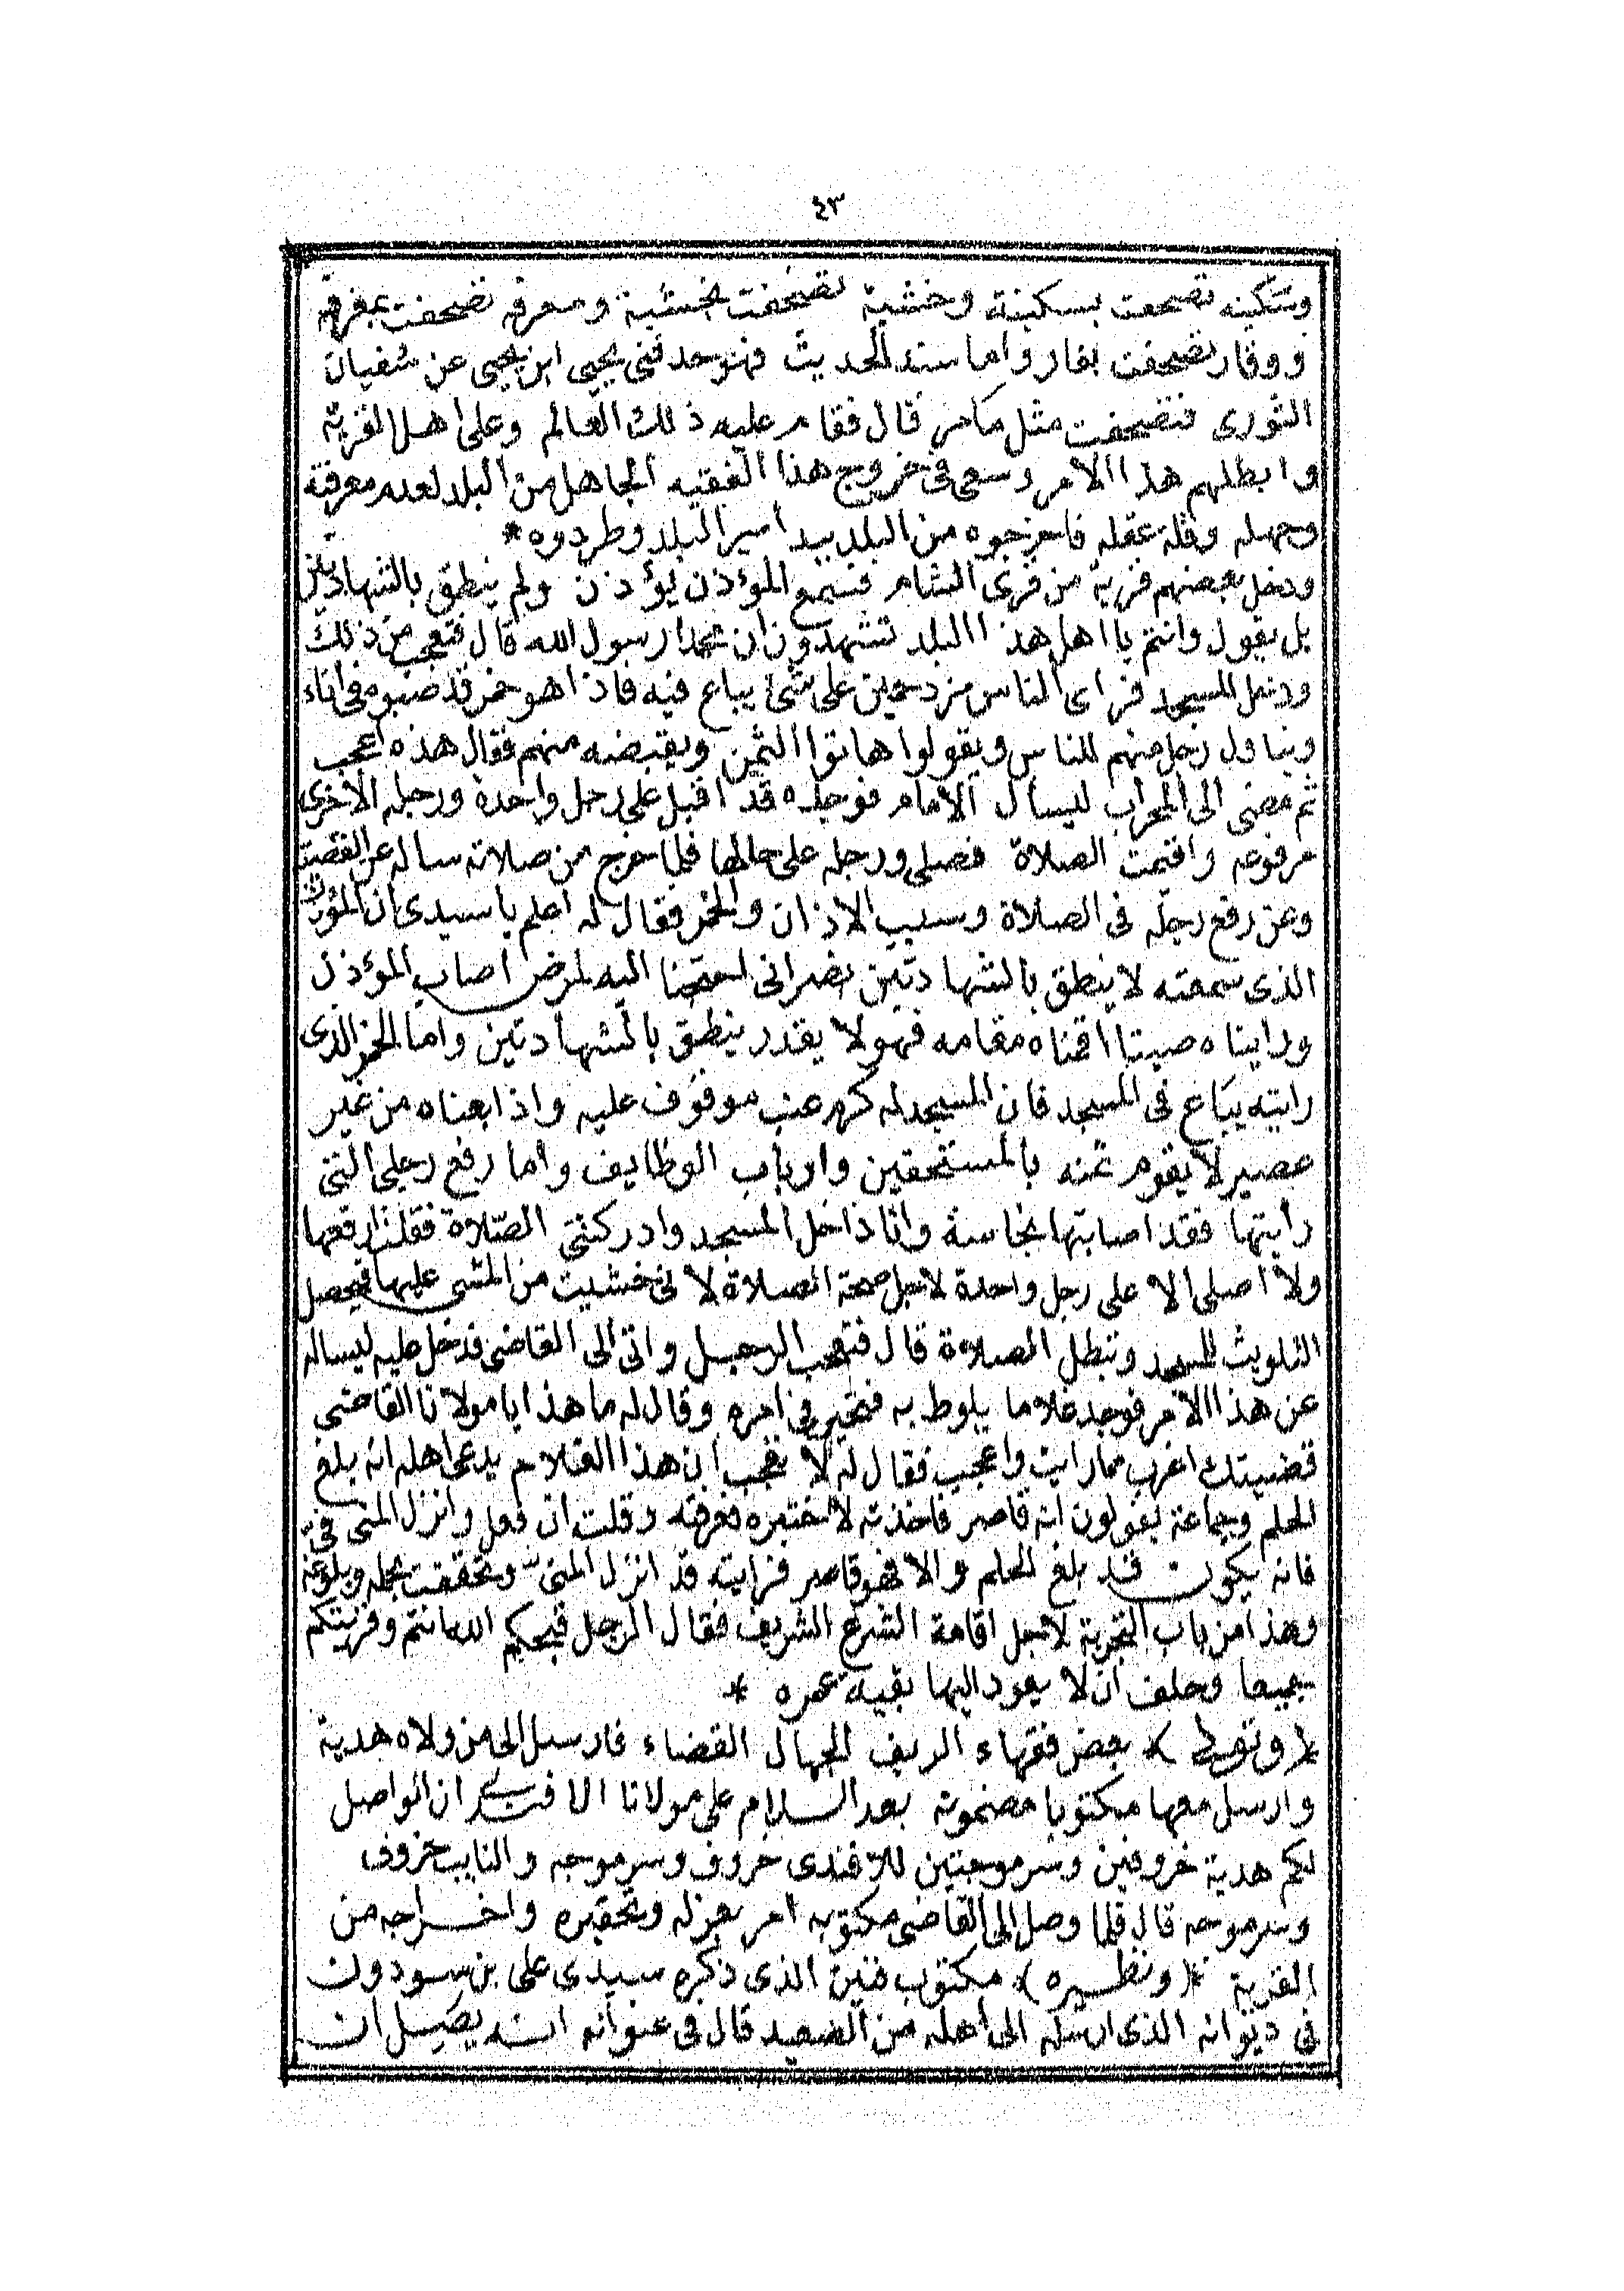 ٤٣
وسكينه تصحفت بسكينة وخشية تصحفت بخشبية ومعرفه تصحفت بمغرفة
ووقار تصحفت بفار واما سند الحديث فهو حدثنى يحيى ابن يحيى عن سفيان
الثورى فتصحفت مثل مامر قال فقام عليه ذلك العالم وعلى اهل القرية
وابطلهم هذا الامر وسعى فى خروج هذا الفقيه الجاهل من البلد لعدم معرفته
وجهله وقلة عقله فاخرجوه من البلد بيد امير البلد وطردوه *
ودخل بعضهم قرية من قرى الشام فسمع المؤذن يؤذن ولم ينطق بالشهادتين
بل يقول وانتم يا اهل هذا البلد تشهدون ان محمدا رسول الله قال فتعجب من ذلك
ودخل المسجد فراى الناس مزدحمين على شئ يباع فيه فاذا هو خمر قد صبوه فى اناء
ويناول رجل منهم للناس ويقولوا هاتوا الثمن ويقبضه منهم فقال هذه اعجب
ثم مضى الى المحراب ليسأل الامام فوجده قد اقبل على رجل واحدة ورجله الاخرى
مرفوعه واقيمت الصلاة فصلى ورجله على حالها فلما خرج من صلاته ساله عن القصة
وعن رفع رجله فى الصلاة وسبب الاذان والخمر فقال له اعلم يا سيدى ان المؤذن
الذى سمعته لا ينطق بالشهادتين نصرانى احتجنا اليه لمرض اصاب المؤذن
ورايناه صيتا اقمناه مقامه فهو لا يقدر ينطق بالشهادتين واما الخمر الذى
رايته يباع فى المسجد فان المسجد له كرم عنب موقوف عليه واذا بعناه من غير
عصير لا يقوم ثمنه بالمستحقين وارباب الوظايف واما رفع رجلى التى
رأيتها فقد اصابتها نجاسة وانا داخل المسجد وادركتنى الصلاة فقلت ارفعها
ولا اصلى الا على رجل واحدة لاجل صحة الصلاة لانى خشيت من المشى عليها فيحصل
التلويث للمسجد وتبطل الصلاة قال فتعجب الرجل واتى الى القاضى فدخل عليه ليساله
عن هذا الامر فوجد غلاما يلوط به فتحير فى امره وقال له ما هذا يا مولانا القاضى
قضيتك اغرب مما رايت واعجب فقال له لا تعجب ان هذا الغلام يدعى اهله انه بلغ
الحلم وجماعة يقولون انه قاصر فاخذته لاختبره وقلت ان فعل وانزل المنى فىّ
فانه يكون قد بلغ الحلم والا فهو قاصر فرايته قد انزل المنىّ وتحققت بحله وبلوغه
وهذا من باب التجربة لاجل اقامة الشرع الشريف فقال الرجل قبحكم الله انتم وقريتكم
جميعا وحلف ان لا يعود اليها بقية عمره *
* (وتولى) * بعض فقهاء الريف الجهال القضاء فارسل الى من ولاه هدية
وارسل معها مكتوبا مضمونه بعد السلام على مولانا الافندى ان الواصل
لكم هدية خروفين وسرموجتين للافندى خروف وسرموجه والنايب خروف
وسرموجه قال فلما وصل الى القاضى مكتوبه امر بعزله وتحقيره واخراجه من
القرية *(ونظيره)* مكتوب فنين الذى ذكره سيدى على بن سودون
فى ديوانه الذى ارسله الى اهله من الصعيد قال فى عنوانه انه يصيل ان